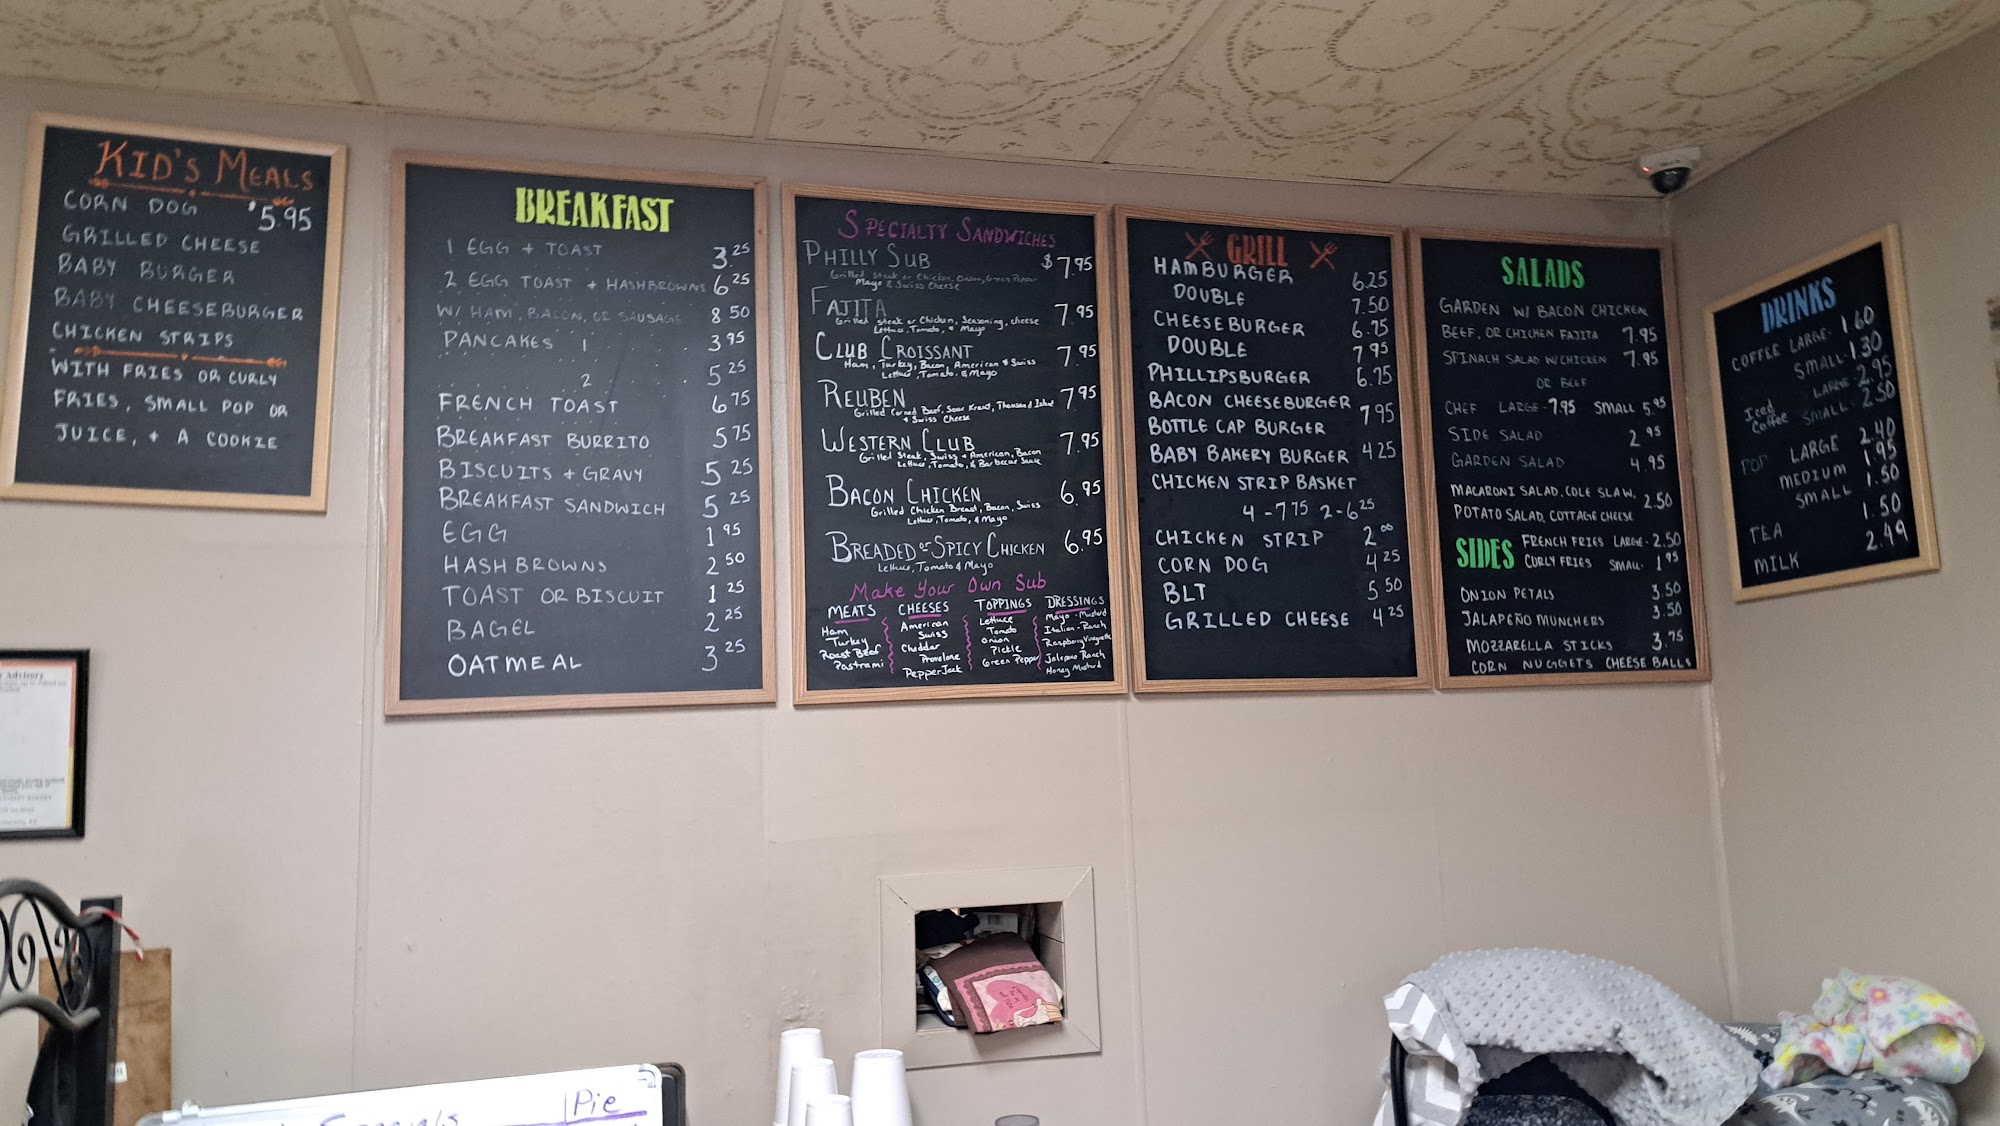 KID'S MEALS
CORN DOG $5.95
GRILLED CHEESE
BABY BURGER
BABY CHEESEBURGER
CHICKEN STRIPS
WITH FRIES OR CURLY
FRIES, SMALL POP OR
JUICE, + A COOKIE
BREAKFAST
1 EGG + TOAST 3.25
2 EGG TOAST + HASHBROWNS 6.25
W/ HAM, BACON, OR SAUSAGE 8.50
PANCAKES 1 3.95
2 5.25
FRENCH TOAST 6.75
BREAKFAST BURRITO 5.75
BISCUITS + GRAVY 5.25
BREAKFAST SANDWICH 5.25
EGG 1.95
HASH BROWNS 2.50
TOAST OR BISCUIT 1.25
BAGEL 2.25
OATMEAL 3.25
SPECIALTY SANDWICHES
PHILLY SUB $7.95
Grilled Steak or Chicken, Onion, Green Pepper
Mayo & Swiss Cheese
FAJITA 7.95
Grilled steak or Chicken, Seasoning, cheese
Lettuce, Tomato, & Mayo
CLUB CROISSANT 7.95
Ham, Turkey, Bacon, American & Swiss
Lettuce, Tomato, & Mayo
REUBEN 7.95
Grilled Corned Beef, Sour Kraut, Thousand Island
& Swiss Cheese
WESTERN CLUB 7.95
Grilled Steak, Swiss & American, Bacon
Lettuce, Tomato, & Barbecue Sauce
BACON CHICKEN 6.95
Grilled Chicken Breast, Bacon, Swiss
Lettuce, Tomato, & Mayo
BREADED or SPICY CHICKEN 6.95
Lettuce, Tomato & Mayo
Make Your Own Sub
MEATS CHEESES TOPPINGS DRESSINGS
Ham American Lettuce Mayo - Mustard
Turkey Swiss Tomato Italian - Ranch
Roast Beef Cheddar Onion Raspberry Vinegrette
Pastrami Provolone Pickle Jalapeno Ranch
PepperJack Green Pepper Honey Mustard
GRILL
HAMBURGER 6.25
DOUBLE 7.50
CHEESEBURGER 6.75
DOUBLE 7.95
PHILLIPSBURGER 6.75
BACON CHEESEBURGER
BOTTLE CAP BURGER 7.95
BABY BAKERY BURGER 4.25
CHICKEN STRIP BASKET
4 - 7.75 2 - 6.25
CHICKEN STRIP 2.00
CORN DOG 4.25
BLT 5.50
GRILLED CHEESE 4.25
SALADS
GARDEN W/ BACON CHICKEN
BEEF, OR CHICKEN FAJITA 7.95
SPINACH SALAD W/CHICKEN 7.95
OR BEEF
CHEF LARGE - 7.95 SMALL 5.95
SIDE SALAD 2.95
GARDEN SALAD 4.95
MACARONI SALAD, COLE SLAW,
POTATO SALAD, COTTAGE CHEESE 2.50
SIDES FRENCH FRIES LARGE - 2.50
CURLY FRIES SMALL - 1.95
ONION PETALS 3.50
JALAPEÑO MUNCHERS 3.50
MOZZARELLA STICKS 3.75
CORN NUGGETS CHEESE BALLS
DRINKS
COFFEE LARGE - 1.60
SMALL - 1.30
Iced LARGE - 2.95
Coffee SMALL - 2.50
POP LARGE 2.40
MEDIUM 1.95
SMALL 1.50
TEA 1.50
MILK 2.49
Advisory
Specials
Pie